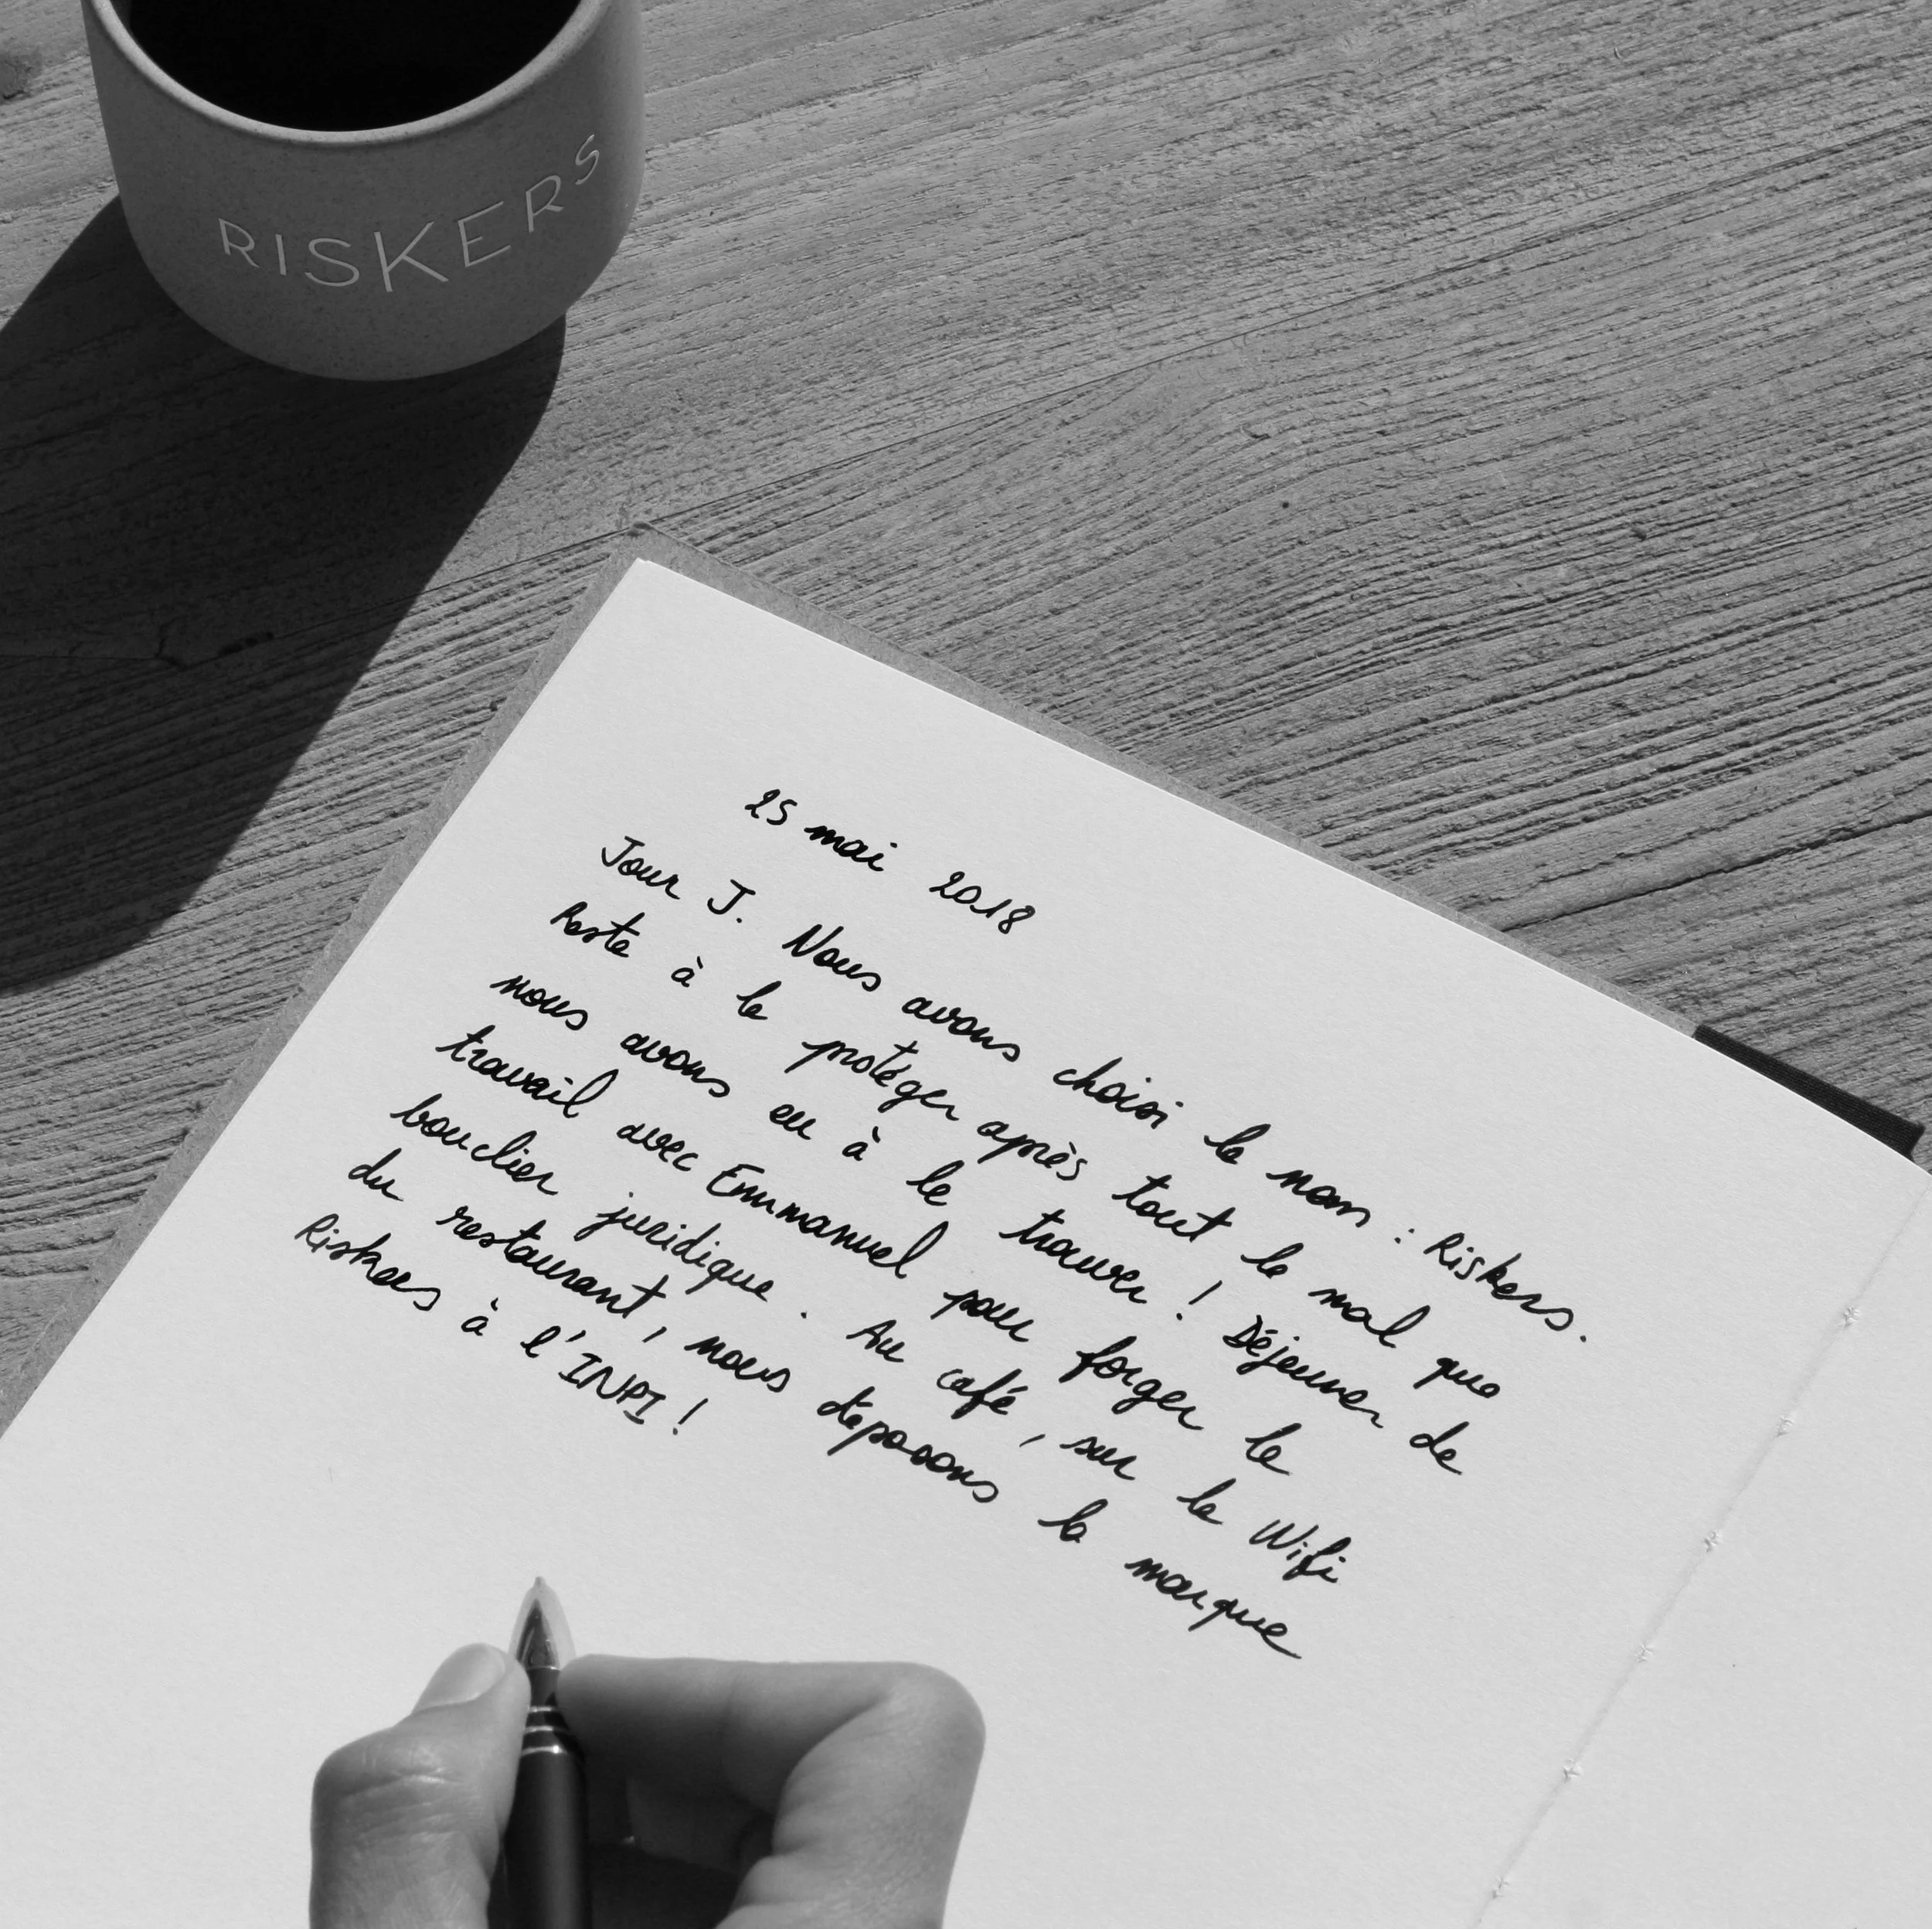 RISKERS
25 mai 2018
Jour J. Nous avons choisi le nom : Riskers.
Reste à le protéger après tout le mal que
nous avons eu à le trouver ! Déjeuner de
travail avec Emmanuel pour forger le
bouclier juridique. Au café, sur le Wifi
du restaurant, nous déposons la marque
Riskers à l'INPI !